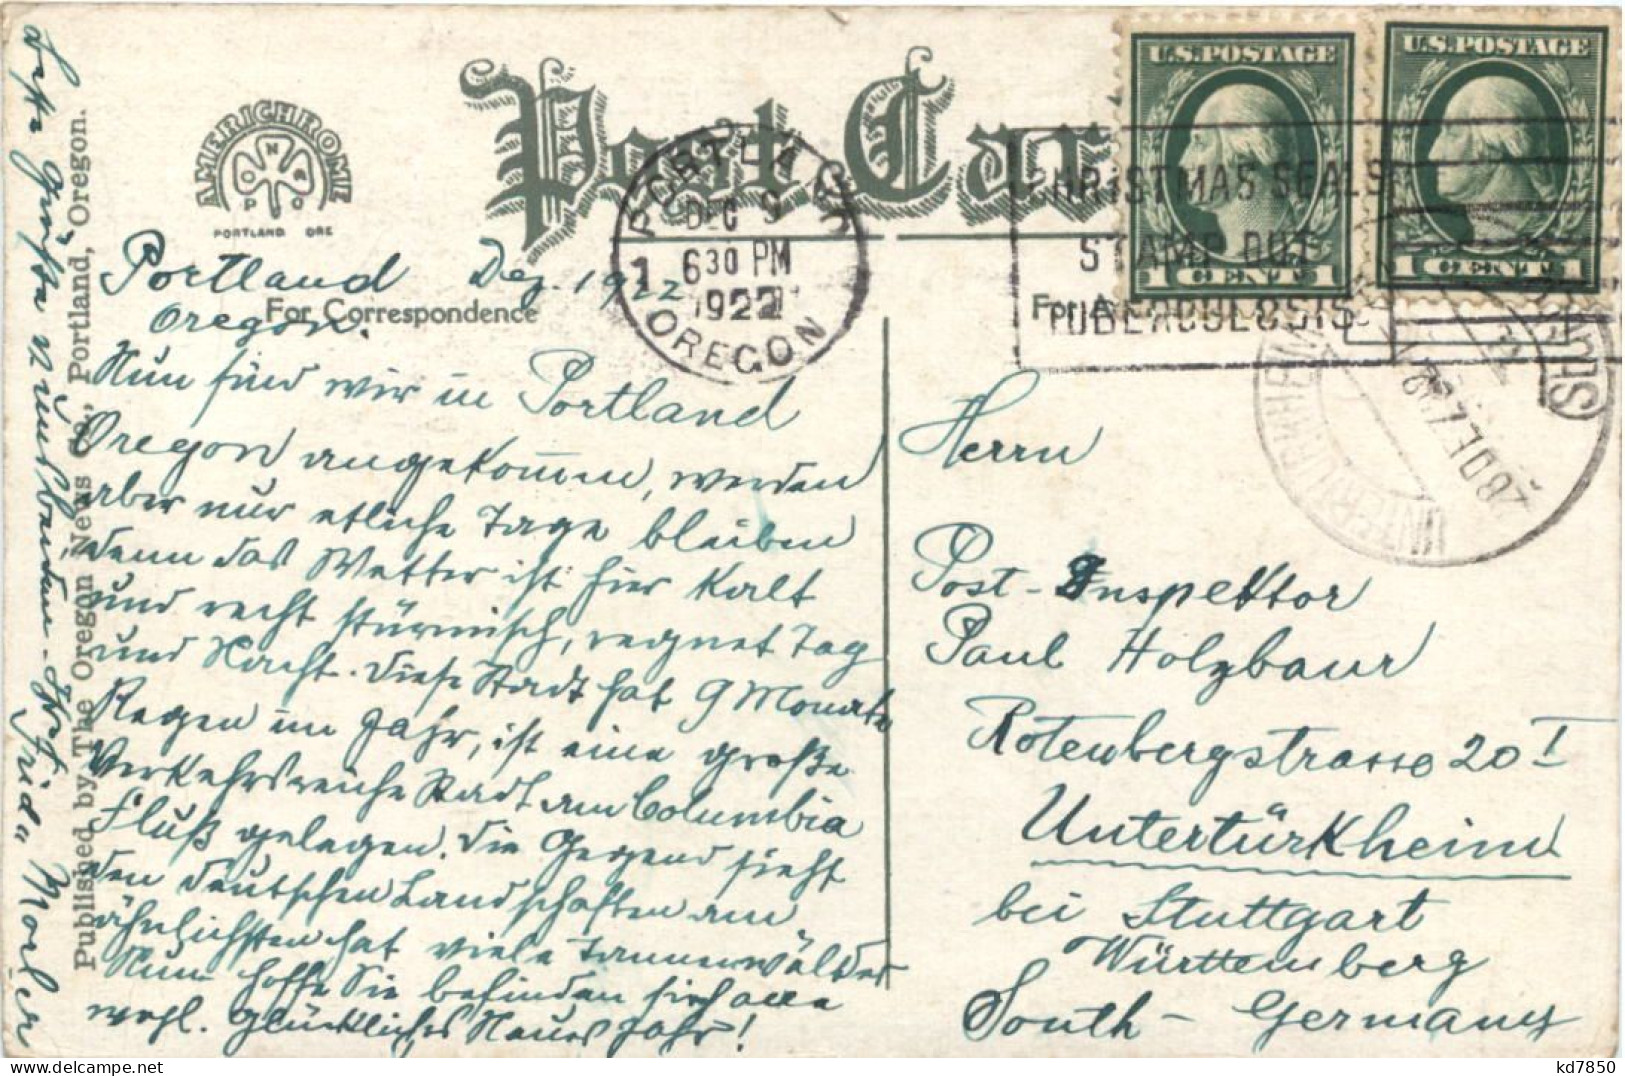 Post Car
AMERICHROME
PORTLAND ORE
For Correspondence
For A
PORTLAND
DEC 9
630 PM
1922
OREGON
1
CHRISTMAS SEALS
STAMP OUT
TUBERCULOSIS
U.S. POSTAGE
1 CENT 1
U.S. POSTAGE
1 CENT 1
Portland Dez. 1922
Oregon.
Nun sind wir in Portland
Oregon angekommen, werden
aber nur etliche Tage bleiben
denn das Wetter ist hier kalt
und recht stürmisch, regnet Tag
und Nacht. Diese Stadt hat 9 Monate
Regen im Jahr, ist eine große
Verkehrsreiche Stadt am Columbia
Fluß gelegen. Die Gegend sieht
den deutschen Landschaften am
ähnlichsten hat viele Tannenwälder
Nun hoffe Sie befinden sich alle
wohl. Glückliches Neues Jahr!
Herrn
Post-Inspektor
Paul Holzbaur
Rotenbergstrasse 20 I
Untertürkheim
bei Stuttgart
Württemberg
South-Germany
Published by The Oregon News Co., Portland, Oregon.
Beste Grüße v. uns beiden
Frida Morler
kd7850